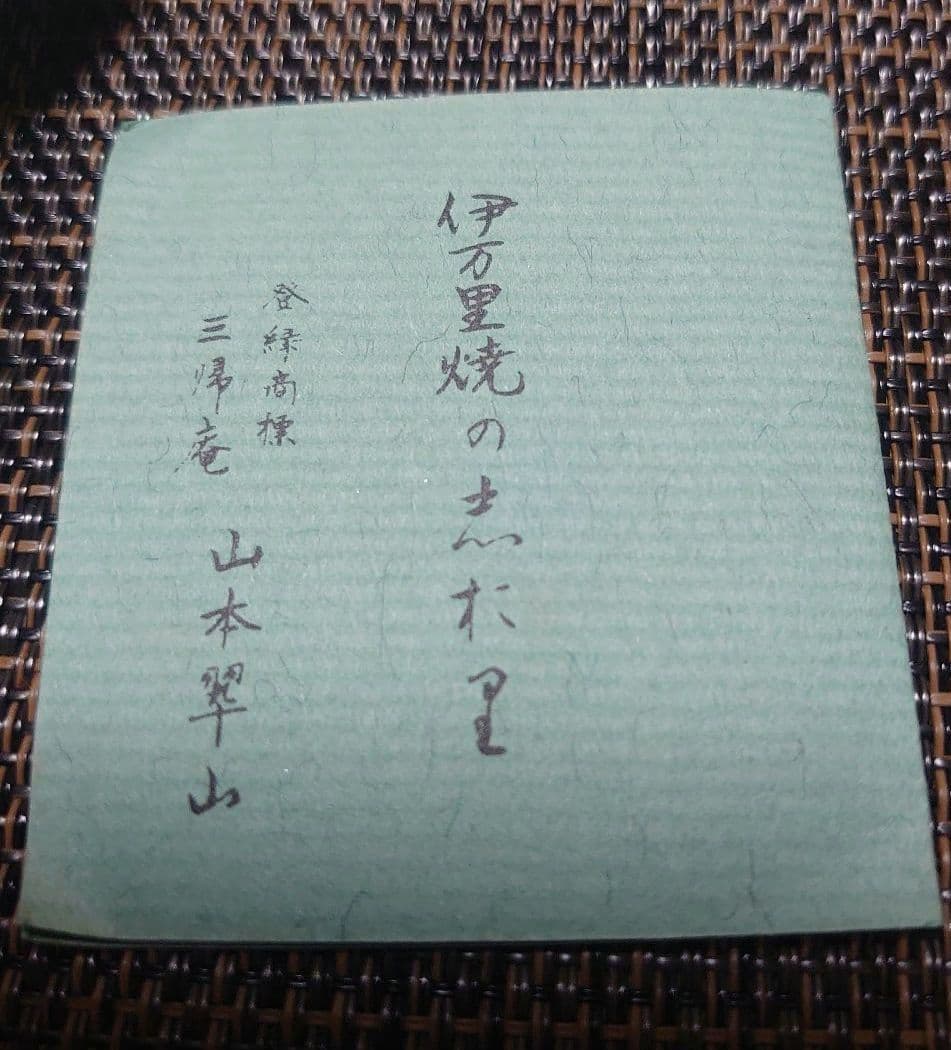 伊万里焼の志お里
登録商標
三帰庵 山本翠山